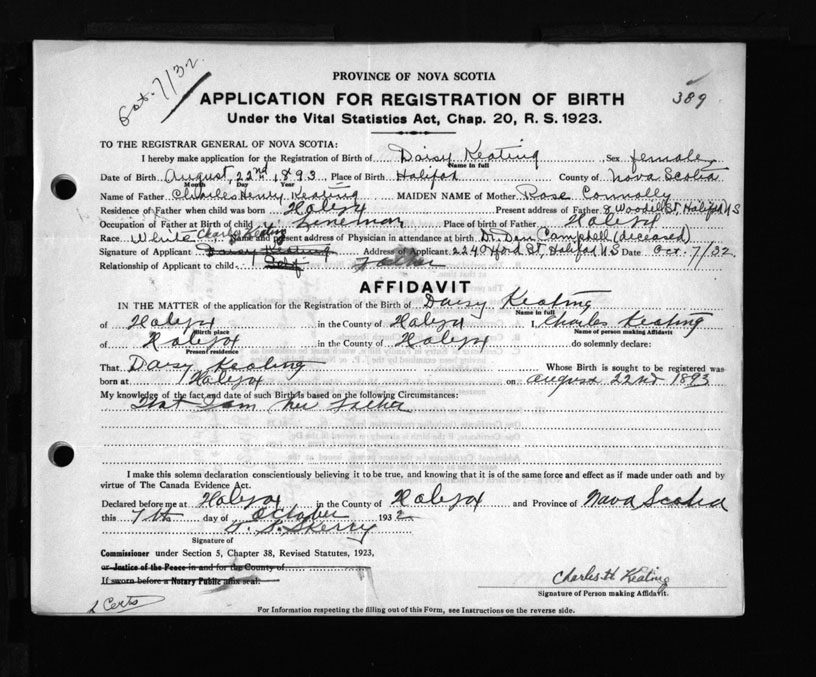 Oct. 7/32.
PROVINCE OF NOVA SCOTIA
APPLICATION FOR REGISTRATION OF BIRTH
389
Under the Vital Statistics Act, Chap. 20, R. S. 1923.
TO THE REGISTRAR GENERAL OF NOVA SCOTIA:
I hereby make application for the Registration of Birth of Daisy Keating Sex female
Name in full
Date of Birth August, 22nd, 1893 Place of Birth Halifax County of Nova Scotia
Month Day Year
Name of Father Charles Henry Keating MAIDEN NAME of Mother Rose Connolly
Residence of Father when child was born Halifax Present address of Father 8 Woodill St, Halifax N S
Occupation of Father at Birth of child Lineman Place of birth of Father Halifax
Race White Name and present address of Physician in attendance at birth Dr. Dan Campbell (deceased)
Charles Keating
Signature of Applicant Daisy Keating Address of Applicant 224 Oxford St, Halifax N.S Date Oct. 7/32.
Relationship of Applicant to child Self Father
AFFIDAVIT
IN THE MATTER of the application for the Registration of the Birth of Daisy Keating
Name in full
of Halifax in the County of Halifax I, Charles Keating
Birth place Name of person making Affidavit
of Halifax in the County of Halifax do solemnly declare:
Present residence
That Daisy Keating Whose Birth is sought to be registered was
born at Halifax on August 22nd 1893
My knowledge of the fact and date of such Birth is based on the following Circumstances:
That I am her father
I make this solemn declaration conscientiously believing it to be true, and knowing that it is of the same force and effect as if made under oath and by
virtue of The Canada Evidence Act.
Declared before me at Halifax in the County of Halifax and Province of Nova Scotia
this 7th day of October 1932
Skerry
Signature of
Commissioner under Section 5, Chapter 38, Revised Statutes, 1923,
or Justice of the Peace in and for the County of
If sworn before a Notary Public affix seal:
Charles H Keating
Signature of Person making Affidavit.
2 Certs
For Information respecting the filling out of this Form, see Instructions on the reverse side.